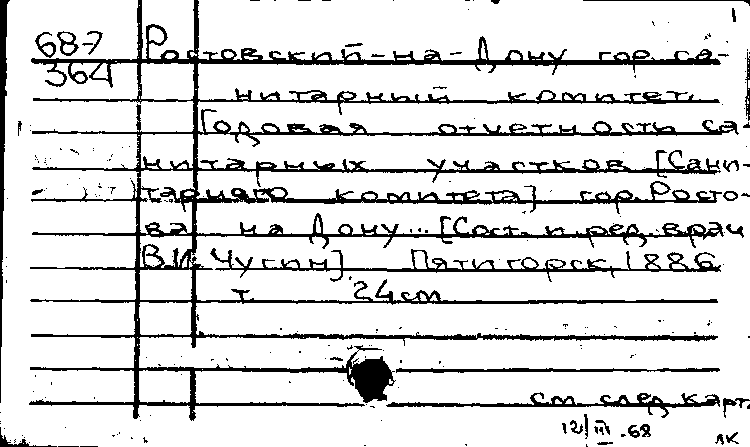 1
687 Ростовский-на-Дону гор. са-
364
нитарный комитет.
Годовая отчетность са-
нитарных участков [Сани-
тарного комитета] гор. Росто-
ва на Дону... [Сост. и ред. врач
В.И. Чугин] Пятигорск, 1886
т. 24см
см. след. карт.
12/III.68
ЛК